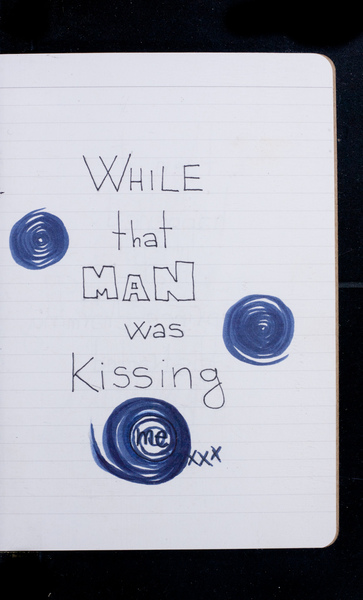 WHILE
that
MAN
was
Kissing
me xxx